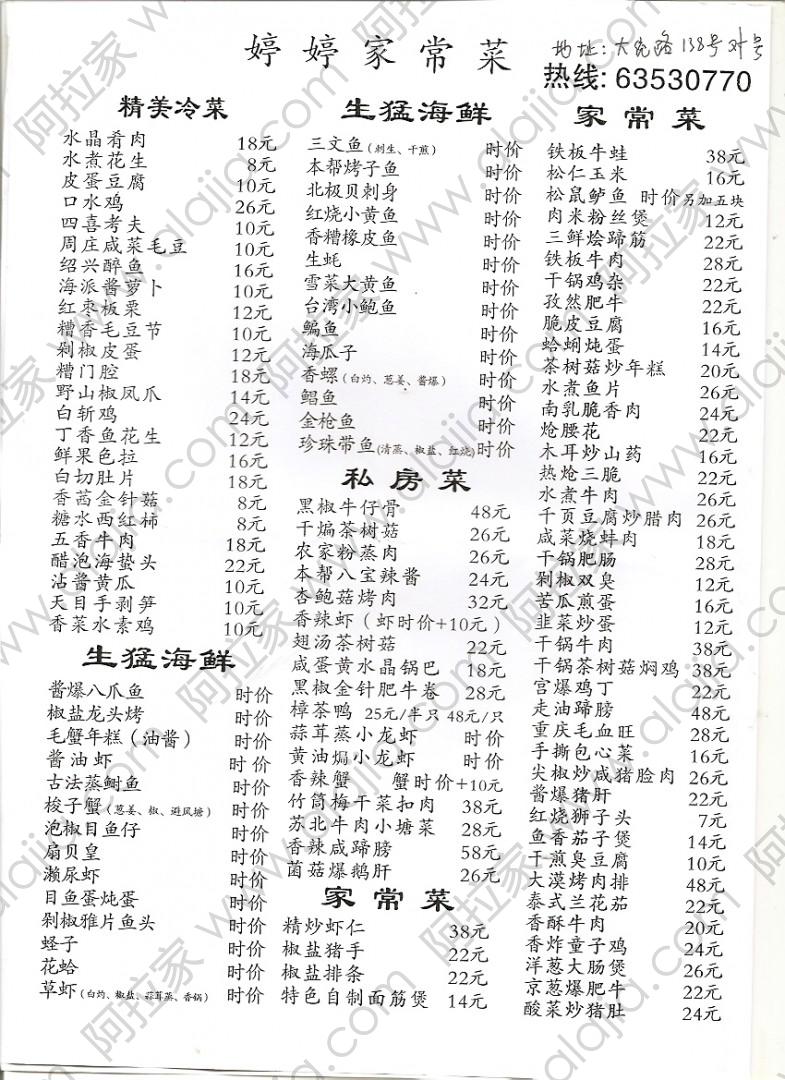 婷婷家常菜
地址: 大兖路138号对号
热线: 63530770
精美冷菜
水晶肴肉 18元
水煮花生 8元
皮蛋豆腐 10元
口水鸡 26元
四喜考夫 10元
周庄咸菜毛豆 10元
绍兴醉鱼 16元
海派酱萝卜 10元
红枣板栗 12元
糟香毛豆节 10元
剁椒皮蛋 12元
糟门腔 18元
野山椒凤爪 14元
白斩鸡 24元
丁香鱼花生 12元
鲜果色拉 16元
白切肚片 18元
香菇金针菇 8元
糖水西红柿 8元
五香牛肉 18元
醋泡海蛰头 22元
沾酱黄瓜 10元
天目手剥笋 10元
香菜水素鸡 10元
生猛海鲜
酱爆八爪鱼 时价
椒盐龙头烤 时价
毛蟹年糕（油酱） 时价
酱油虾 时价
古法蒸鲥鱼 时价
梭子蟹（葱姜、椒、避风塘） 时价
泡椒目鱼仔 时价
扇贝皇 时价
濑尿虾 时价
目鱼蛋炖蛋 时价
剁椒雅片鱼头 时价
蛏子 时价
花蛤 时价
草虾（白灼、椒盐、蒜茸蒸、香锅） 时价
生猛海鲜
三文鱼（刺生、干煎） 时价
本帮烤子鱼 时价
北极贝刺身 时价
红烧小黄鱼 时价
香糟橡皮鱼 时价
生蚝 时价
雪菜大黄鱼 时价
台湾小鲍鱼 时价
鳊鱼 时价
海瓜子 时价
香螺（白灼、葱姜、酱爆） 时价
鲳鱼 时价
金枪鱼 时价
珍珠带鱼（清蒸、椒盐、红烧） 时价
私房菜
黑椒牛仔骨 48元
干煸茶树菇 26元
农家粉蒸肉 26元
本帮八宝辣酱 24元
杏鲍菇烤肉 32元
香辣虾（虾时价+10元）
翅汤茶树菇 22元
咸蛋黄水晶锅巴 18元
黑椒金针肥牛卷 28元
樟茶鸭 25元/半只 48元/只
蒜茸蒸小龙虾 时价
黄油焗小龙虾 时价
香辣蟹 蟹时价+10元
竹筒梅干菜扣肉 38元
苏北牛肉小塘菜 28元
香辣咸蹄膀 58元
菌菇爆鹅肝 26元
家常菜
精炒虾仁 38元
椒盐猪手 22元
椒盐排条 22元
特色自制面筋煲 14元
家常菜
铁板牛蛙 38元
松仁玉米 16元
松鼠鲈鱼 时价另加五块
肉米粉丝煲 12元
三鲜烩蹄筋 22元
铁板牛肉 28元
干锅鸡杂 22元
孜然肥牛 22元
脆皮豆腐 16元
蛤蜊炖蛋 14元
茶树菇炒年糕 20元
水煮鱼片 26元
南乳脆香肉 24元
炝腰花 22元
木耳炒山药 16元
热炝三脆 22元
水煮牛肉 26元
千页豆腐炒腊肉 26元
咸菜烧蚌肉 18元
干锅肥肠 28元
剁椒双臭 12元
苦瓜煎蛋 16元
韭菜炒蛋 12元
干锅牛肉 38元
干锅茶树菇焖鸡 38元
宫爆鸡丁 22元
走油蹄膀 48元
重庆毛血旺 28元
手撕包心菜 16元
尖椒炒咸猪脸肉 26元
酱爆猪肝 22元
红烧狮子头 7元
鱼香茄子煲 14元
干煎臭豆腐 10元
大漠烤肉排 48元
泰式兰花茄 22元
香酥牛肉 20元
香炸童子鸡 24元
洋葱大肠煲 26元
京葱爆肥牛 22元
酸菜炒猪肚 24元
阿拉家 www.alajia.com